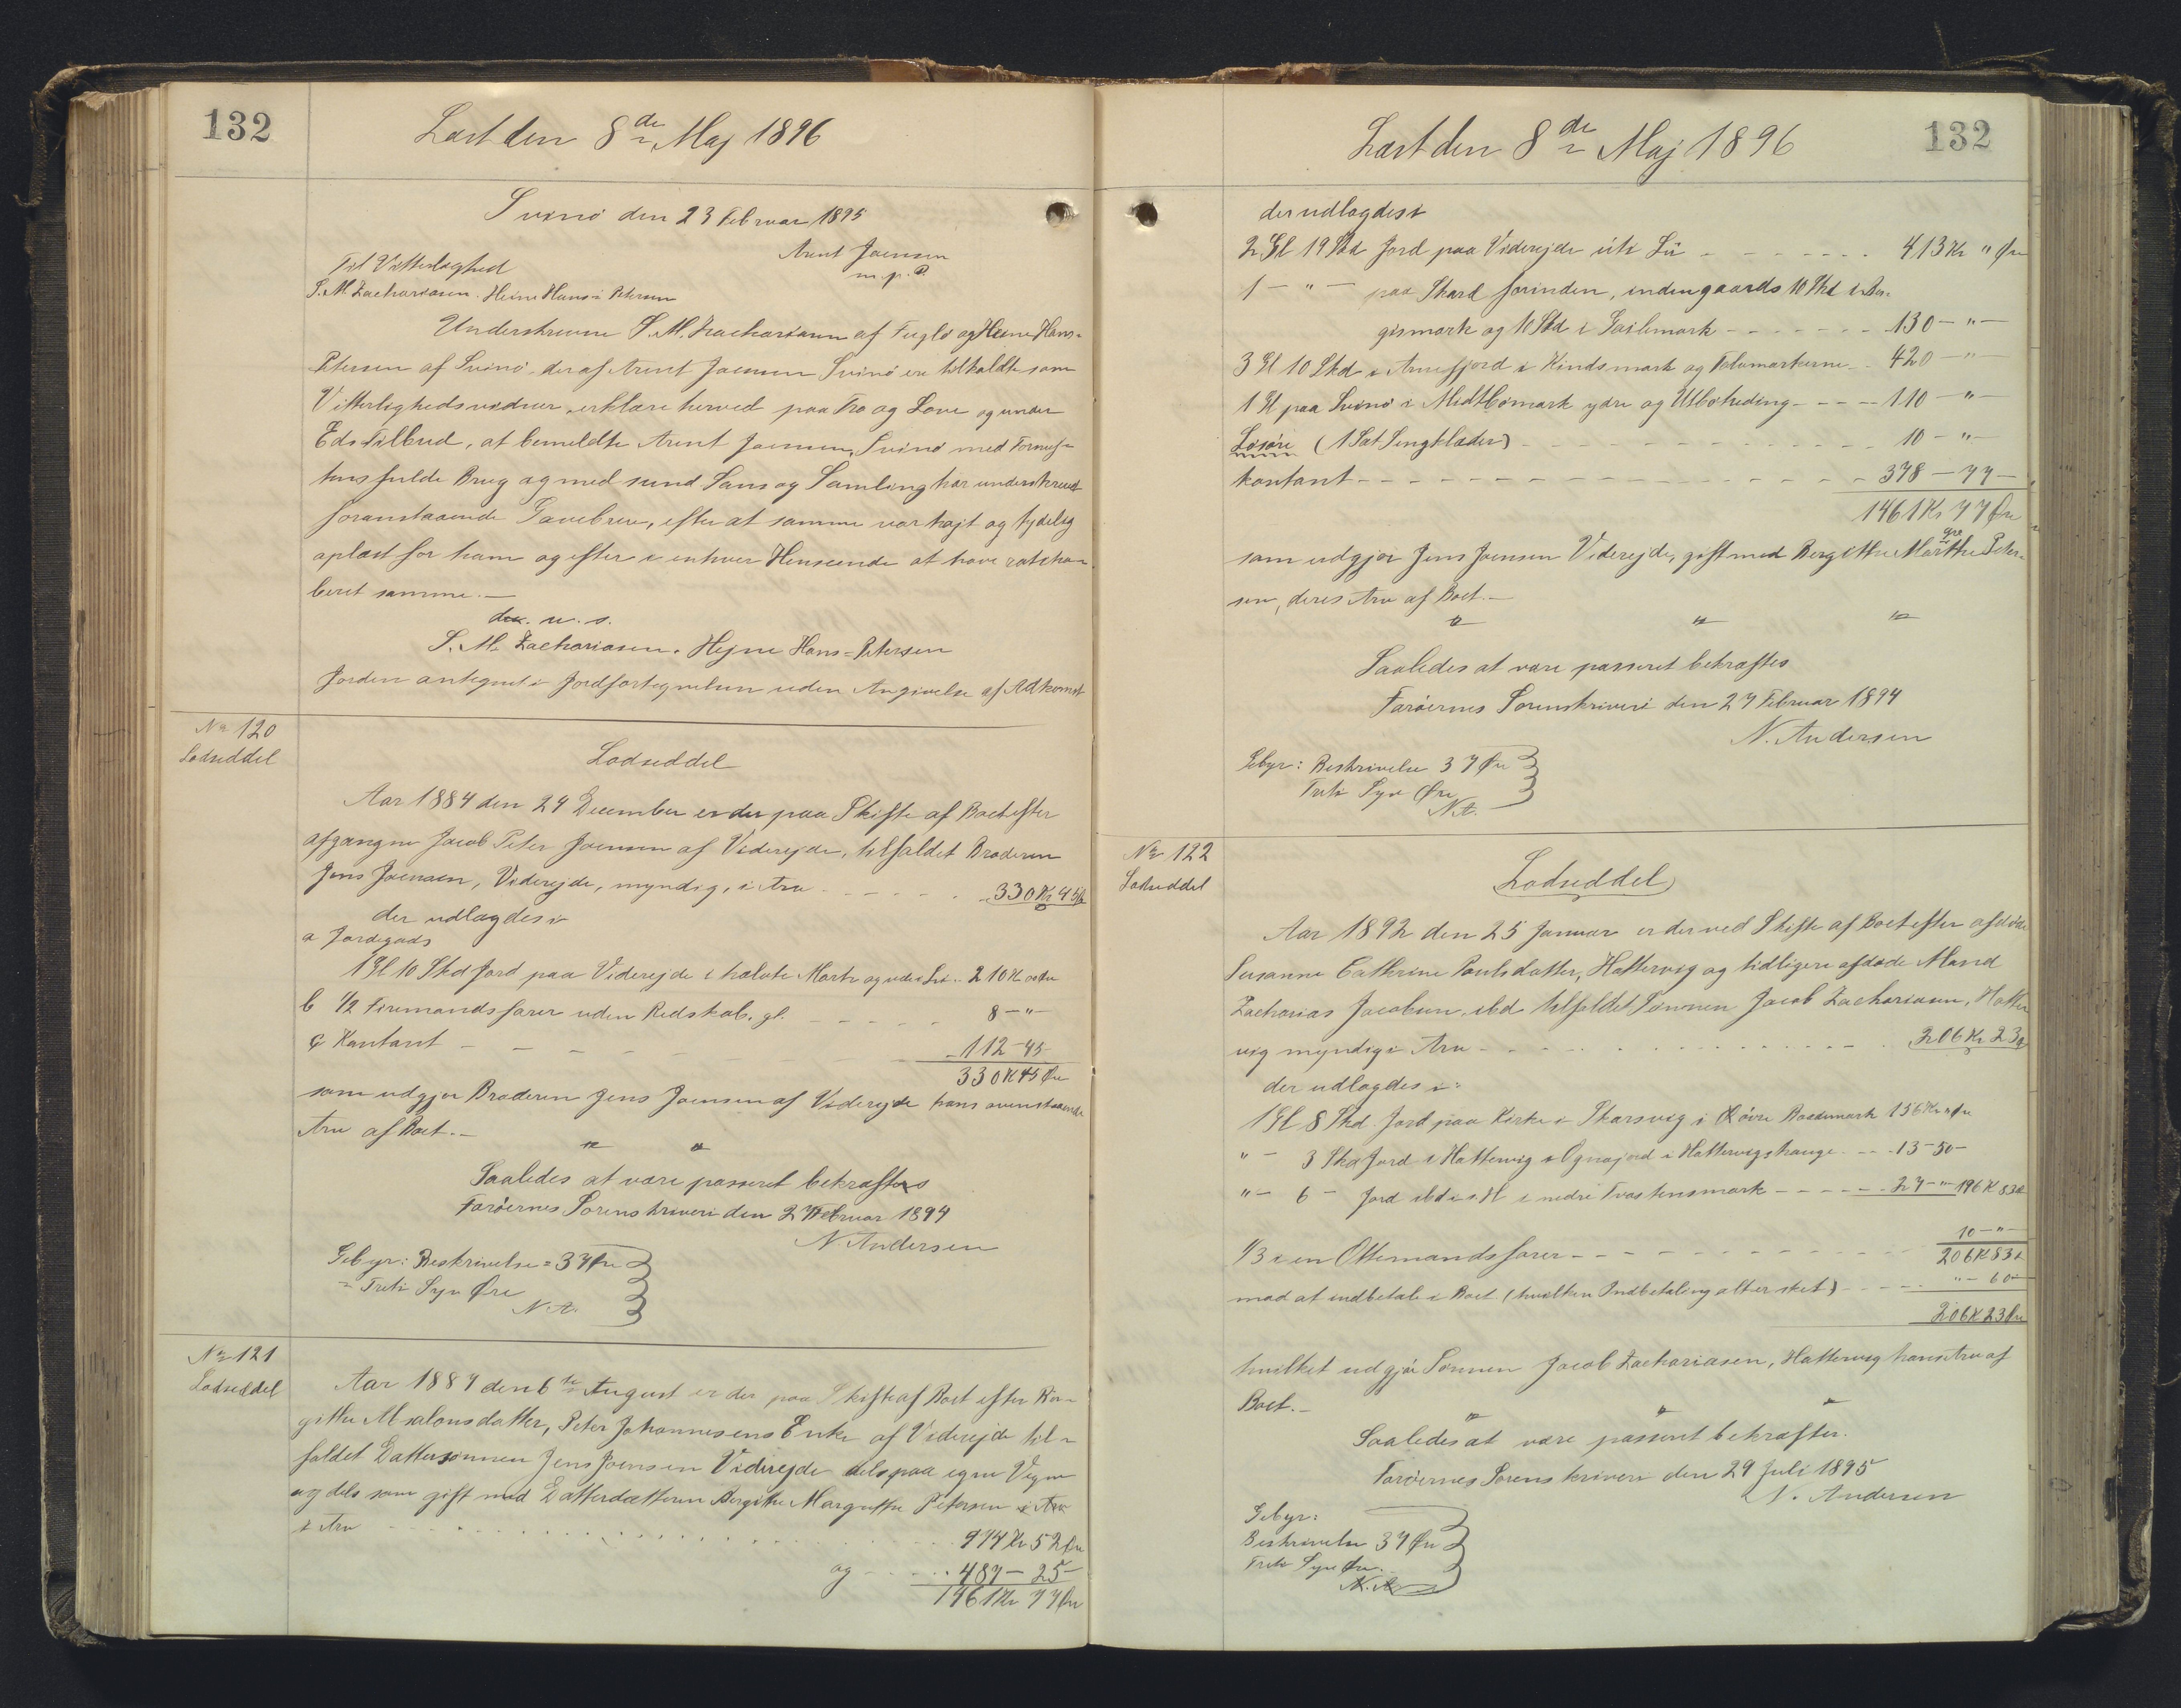 132
Læst den 8de Maj 1896
Svinø den 23 Februar 1895
Arent Joensen
m. p. P.
Til Vitterlighed
S. M. Zachariasen. Heine Hans-Petersen
Underskrevne S. M. Zachariasen af Fuglø og Heine Hans-
Petersen af Svinø, der af Arent Joensen Svinø ere tilkaldte som
Vitterlighedsvidner, erklære herved paa Tro og Love og under
Eds Tilbud, at bemeldte Arent Joensen, Svinø med Fornuf-
tens fulde Brug og med sund Sans og Samling har underskrevet
foranstaaende Gavebrev, efter at samme var højt og tydelig
oplæst for ham og efter i enhver Henseende at have ratiha-
beret samme.—
dec. u. s.
S. M. Zachariasen. Hejne Hans-Petersen
Jorden antegnet i Jordfortegnelsen uden Angivelse af Adkomst
No 120
Lodseddel
Lodseddel
Aar 1884 den 24 December er der paa Skifte af Boet efter
afgangne Jacob Peter Joensen af Viderejde, tilfaldet Broderen
Jens Joensen, Viderejde, myndig, i Arv - - - - - 330 Kr 45 Ø
der udlagdes i
a Jordegods
1 Gl 10 Skd Jord paa Viderejde i halvte Mark og ude i Lii .. 210 Kr " Øre
b 1/2 Firemandsfarer uden Redskab. gl. - - - - - 8 - " -
c Kontant - - - - - 112 - 45
330 Kr 45 Øre
som udgjør Broderen Jens Joensen af Viderejde hans ovenstaaende
Arv af Boet.—
" "
Saaledes at være passeret bekræftes
Færøernes Sorenskriveri den 27 Februar 1894
N. Andersen
Gebyr: Beskrivelse = 37 Øre
= Treti Syv Øre
N. A.
No 121
Lodseddel
Aar 1884 den 6te August er der paa Skifte af Boet efter Bir-
gitte Absalonsdatter, Peter Johannesens Enke af Viderejde til-
faldet Dattersønnen Jens Joensen Viderejde dels paa egne Vegne
og dels som gift med Datterdatteren Bergitte Margrethe Petersen i Arv
i Arv - - - - - 974 Kr 52 Øre
og - - - - - 487 - 25 -
1461 Kr 77 Øre
Læst den 8de Maj 1896
132
der udlagdes i
2 Gl 19 Skd Jord paa Viderejde úti Lii - - - - - 413 Kr " Øre
1 - " - paa Skard forinden, indengaards 10 Skd i Bær-
gismark og 10 Skd i Gailemark - - - - - 130 - " -
3 Gl 10 Skd i Arnefjord i Kindsmark og Tolvmarkerne - - 420 - " -
1 Gl paa Svinø i Midtbömark ydre og Utbøheding - - - - 110 - " -
Løsøre (1 Sæt Sengklæder) - - - - - 10 - " -
kontant - - - - - 378 - 77 -
1461 Kr 77 Øre
som udgjør Jens Joensen Viderejde, gift med Bergitthe Margrethe Peter-
sen, deres Arv af Boet.—
" " "
Saaledes at være passeret bekræftes
Færøernes Sorenskriveri den 27 Februar 1894
N. Andersen
Gebyr: Beskrivelse 37 Øre
Treti Syv Øre
N. A.
No 122
Lodseddel
Lodseddel
Aar 1892 den 25 Januar er der ved Skifte af Boet efter afdøde
Susanne Cathrine Poulsdatter, Hattervig og tidligere afdøde Mand
Zacharias Jacobsen, ibd. tilfaldet Sønnen Jacob Zachariasen, Hatter
vig myndig i Arv - - - - - 206 Kr 23 Ø
der udlagdes i:
1 Gl 8 Skd. Jord paa Kirke i Skarsvig i Øvre Boedemark 156 Kr " Øre
" - 3 Skd Jord i Hattervig i Ognajord i Hattervigshauge - - - 13 - 50 -
" - 6 - Jord ibd i nedre Tvastensmark - - - - - 27 - " - 196 Kr 83 Ø
1/3 i en Ottemandsfarer - - - - - 10 - " -
206 Kr 83 Ø
mod at indbetale i Boet (hvilken Indbetaling alt er sket) - - - - " - 60 -
206 Kr 23 Øre
hvilket udgjør Sønnen Jacob Zachariasen, Hattervig hans Arv af
Boet.—
" " "
Saaledes at være passeret bekræftes.
Færøernes Sorenskriveri den 29 Juli 1895
N. Andersen
Gebyr:
Beskrivelse 37 Øre
Treti Syv Øre.
N. A.